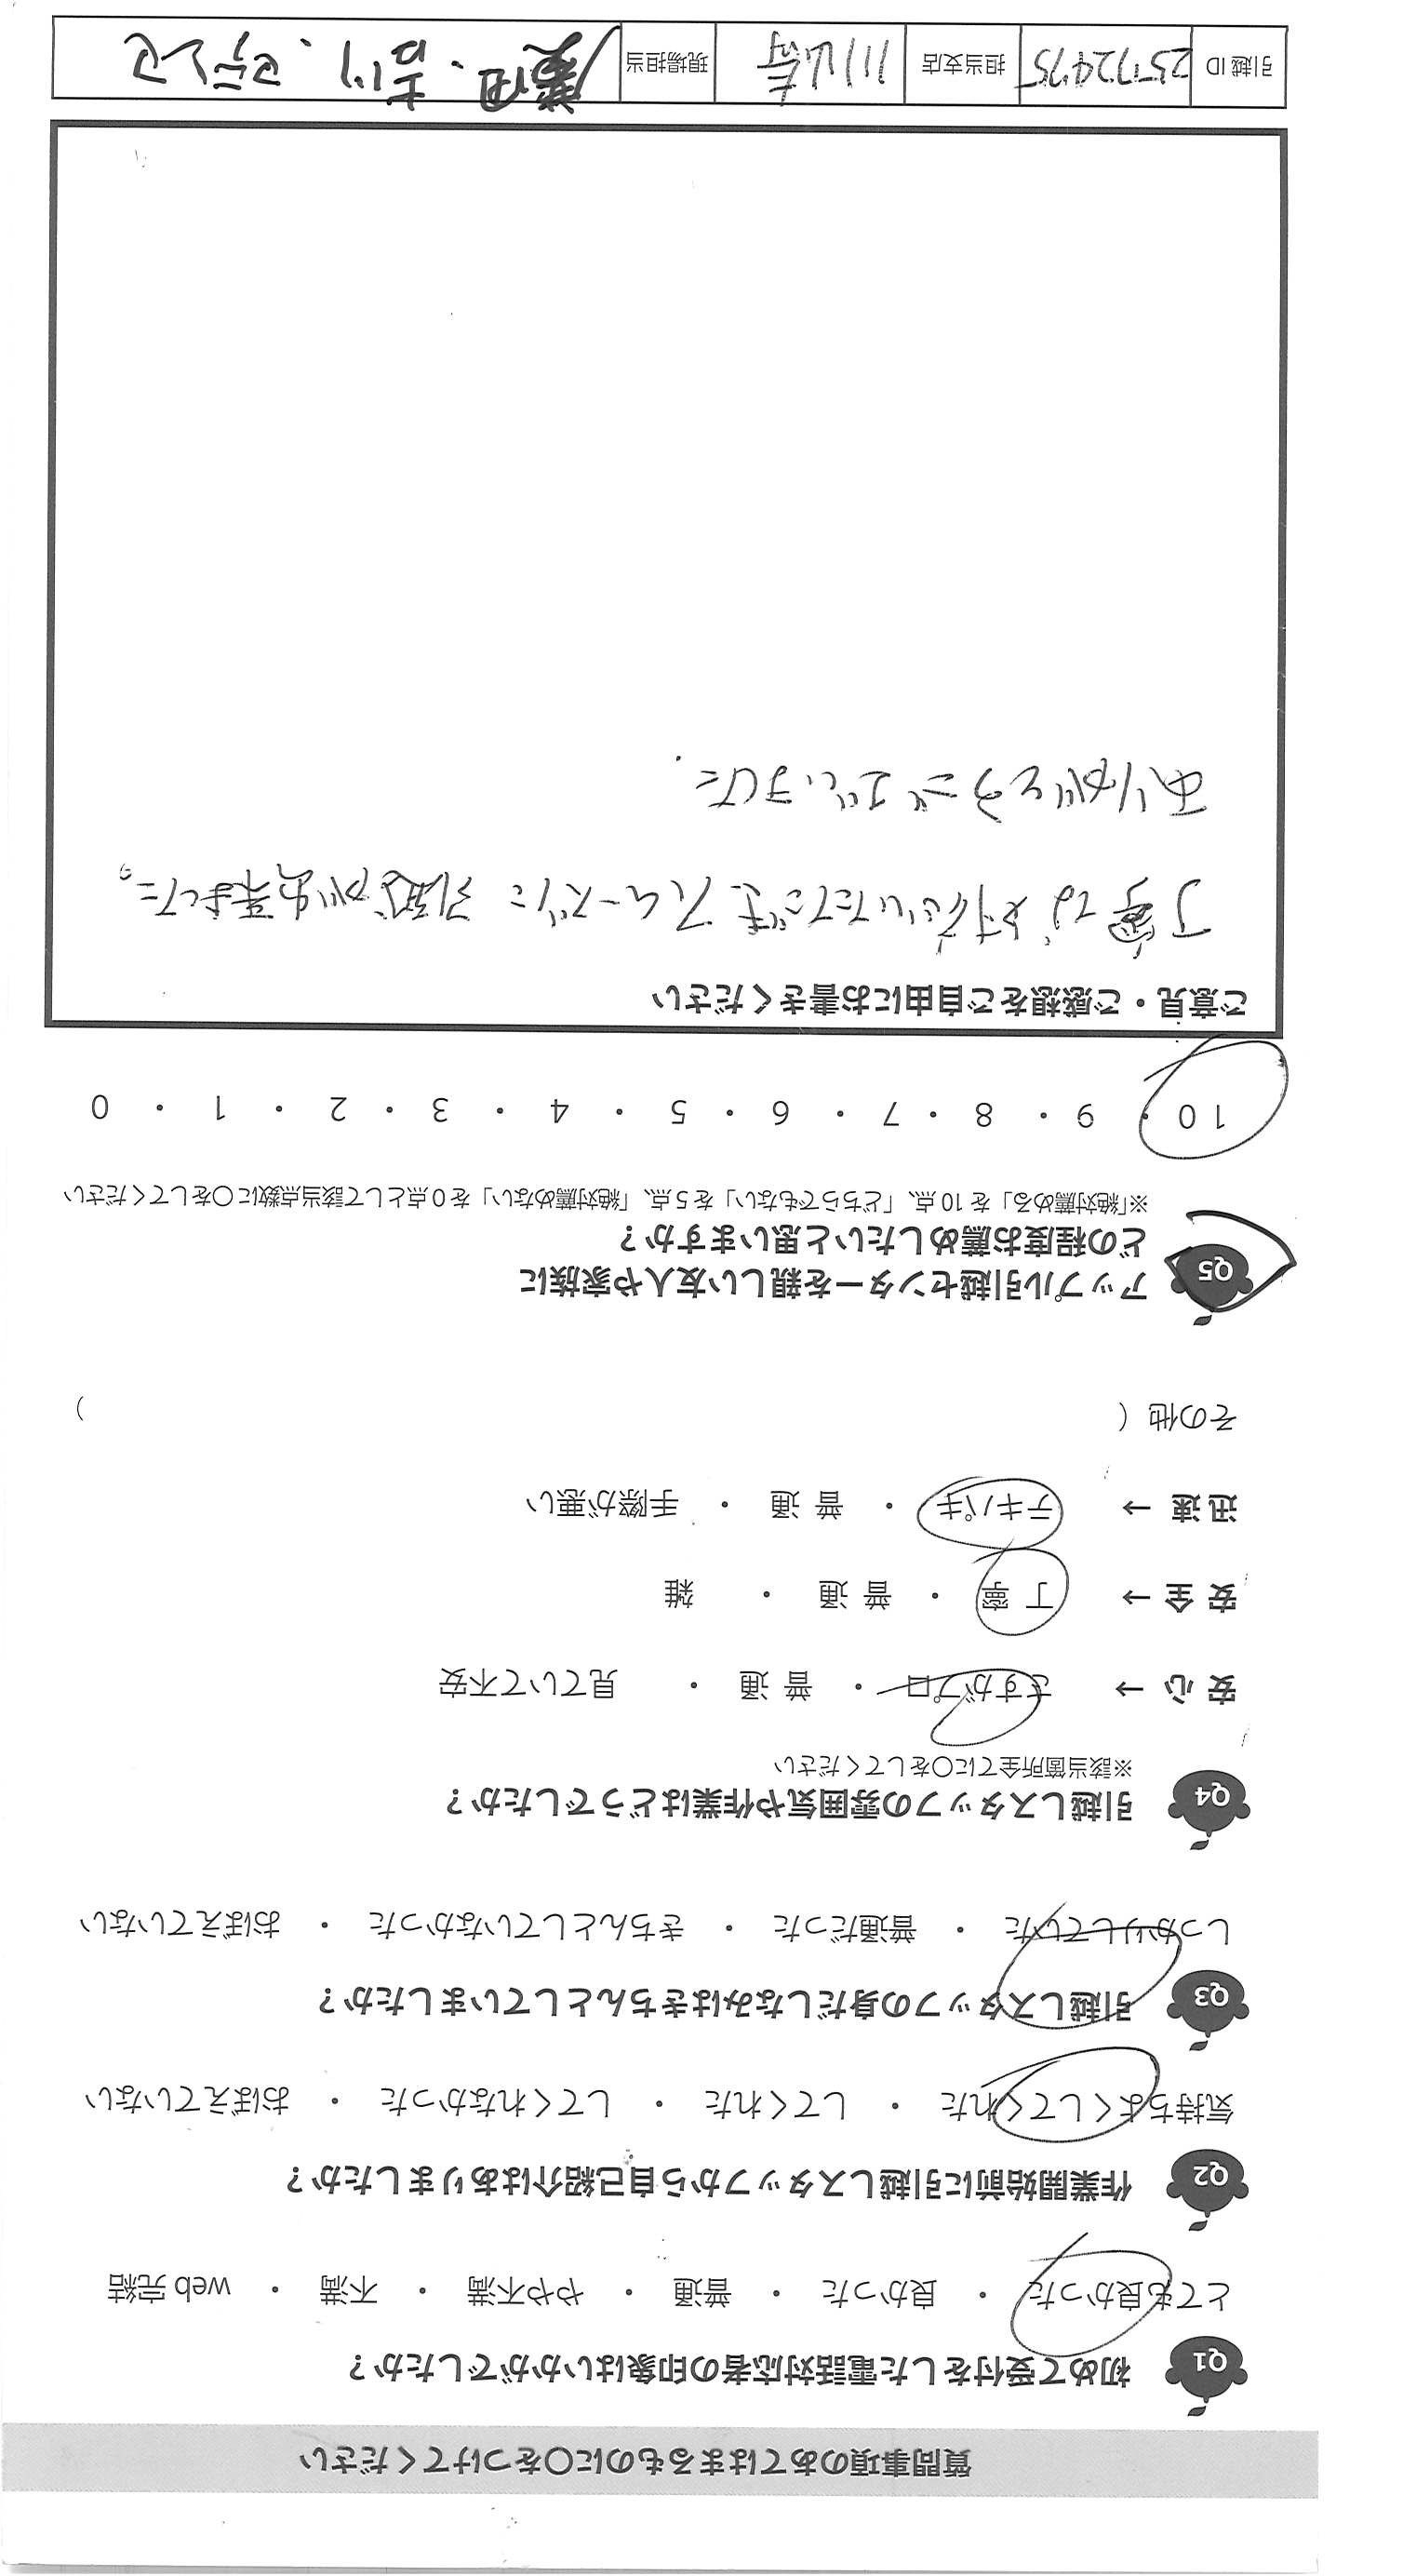 質問事項のあてはまるものに〇をつけてください
Q1 初めて受付をした電話対応者の印象はいかがでしたか？
とても良かった ・ 良かった ・ 普通 ・ やや不満 ・ 不満 ・ web 完結
Q2 作業開始前に引越しスタッフから自己紹介はありましたか？
気持ちよくしてくれた ・ してくれた ・ してくれなかった ・ おぼえていない
Q3 引越しスタッフの身だしなみはきちんとしていましたか？
しっかりしていた ・ 普通だった ・ きちんとしていなかった ・ おぼえていない
Q4 引越しスタッフの雰囲気や作業はどうでしたか？
※該当箇所全てに〇をしてください
安心 → さすがプロ ・ 普通 ・ 見ていて不安
安全 → 丁寧 ・ 普通 ・ 雑
迅速 → テキパキ ・ 普通 ・ 手際が悪い
その他（ ）
Q5 アップル引越センターを親しい友人や家族に
どの程度お薦めしたいと思いますか？
※「絶対薦める」を 10 点、「どちらでもない」を 5 点、「絶対薦めない」を 0 点として該当点数に〇をしてください
10 ・ 9 ・ 8 ・ 7 ・ 6 ・ 5 ・ 4 ・ 3 ・ 2 ・ 1 ・ 0
ご意見・ご感想をご自由にお書きください
丁寧な対応いただきスムーズに引越が出来ました。
ありがとうございました.
引越 ID 25772475 担当支店 川崎 現場担当